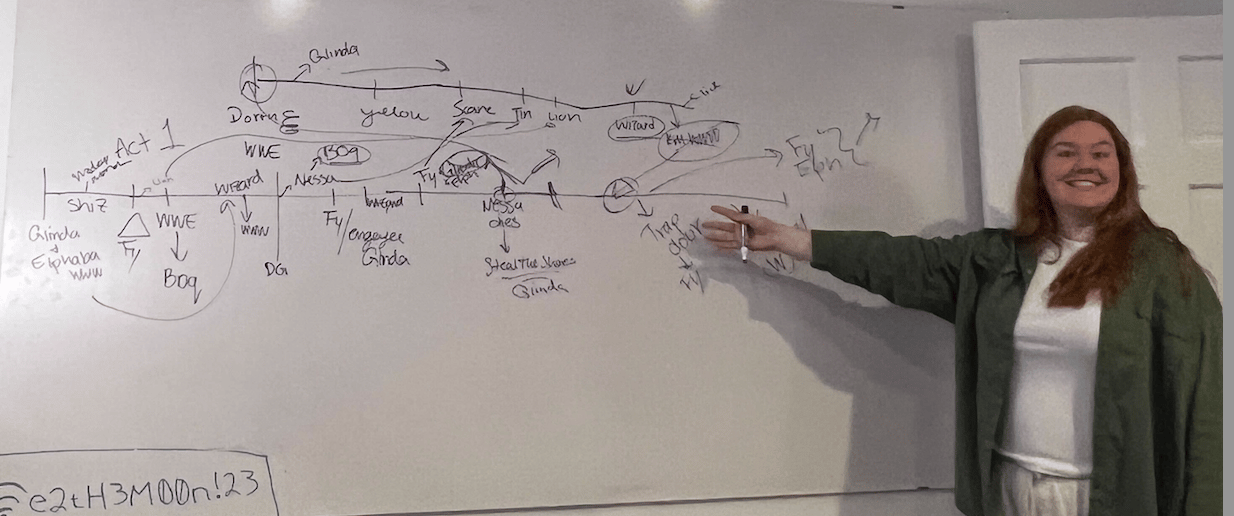 Glinda
yellow
Scare
Tin
Lion
Wizard
Act 1
WWE
Boq
Nessa
Wizard
Fy
Shiz
WWE
WWW
Fy
Nessa
dies
Fy
Elph
Glinda
&
Elphaba
WWW
Fy
Boq
DG
Fy/
engagee
Glinda
Steal The Shoes
Glinda
Trap
door
Fy
W
e2tH3M00n!23